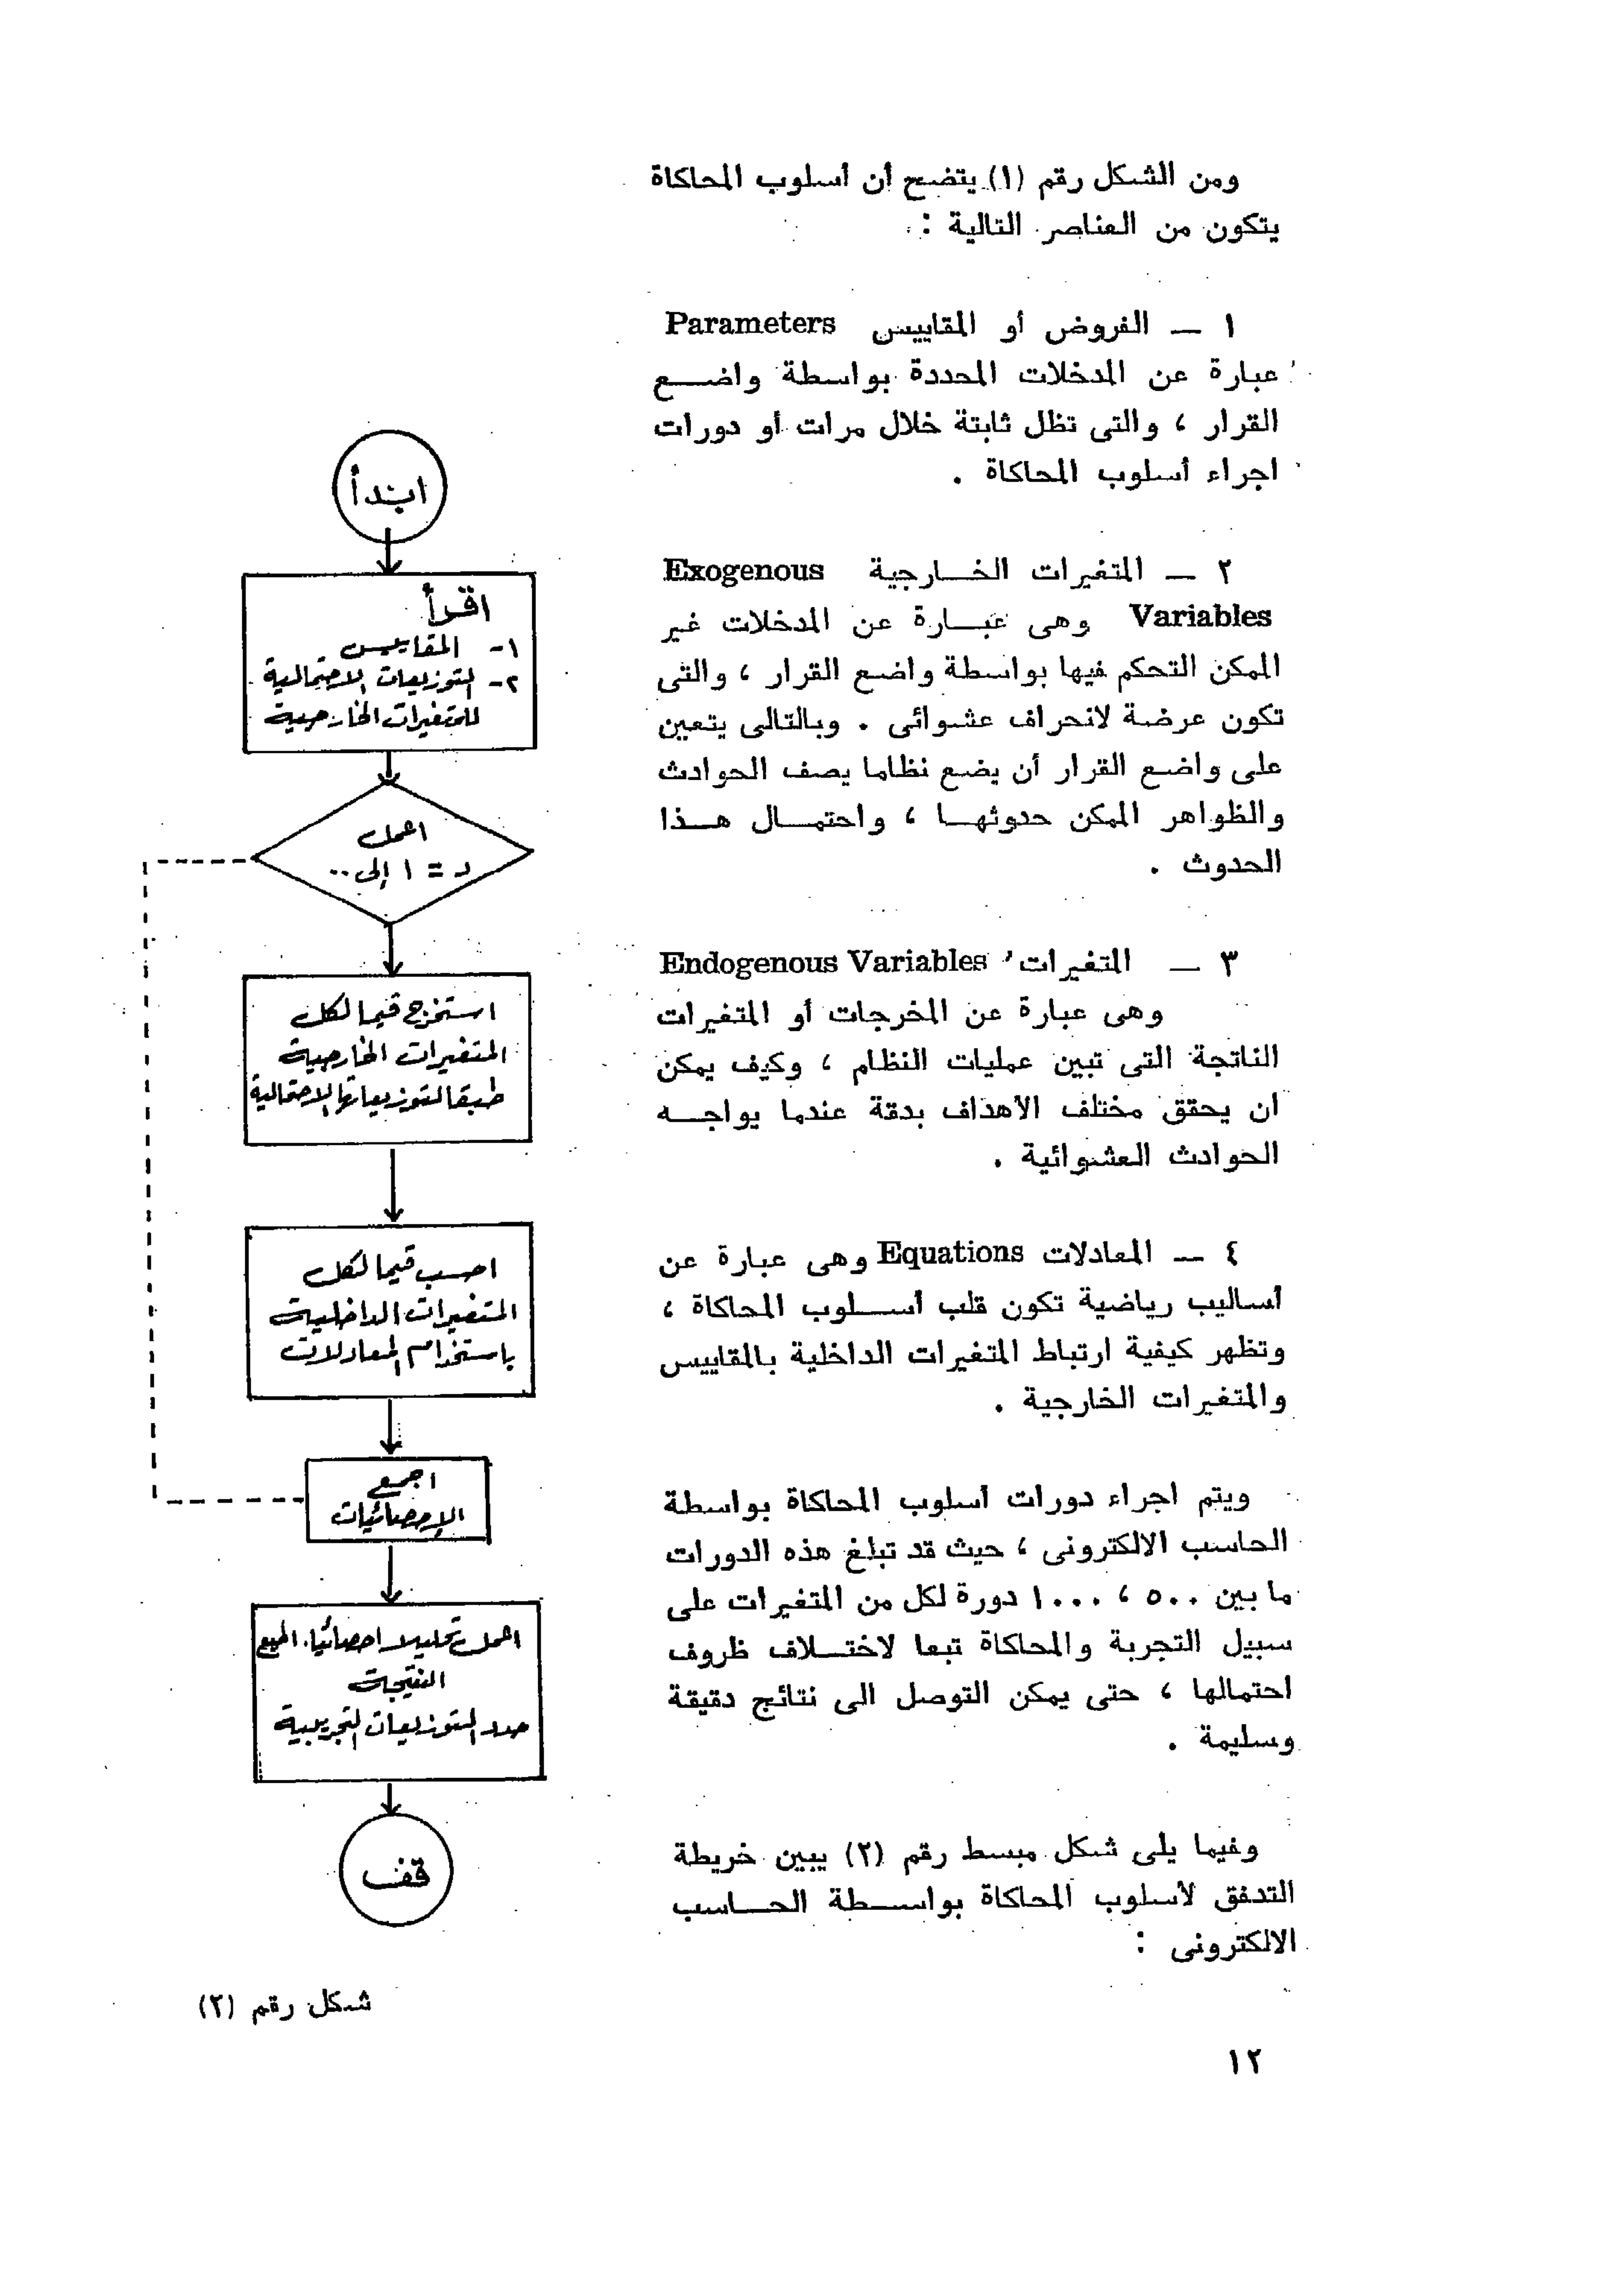 ومن الشكل رقم (١) يتضح أن أسلوب المحاكاة
يتكون من العناصر التالية :
١ — الفروض أو المقاييس Parameters
عبارة عن المدخلات المحددة بواسطة واضع
القرار ، والتى تظل ثابتة خلال مرات أو دورات
اجراء أسلوب المحاكاة .
٢ — المتغيرات الخارجية Exogenous
Variables وهى عبارة عن المدخلات غير
الممكن التحكم فيها بواسطة واضع القرار ، والتى
تكون عرضة لانحراف عشوائى . وبالتالى يتعين
على واضع القرار أن يضع نظاما يصف الحوادث
والظواهر الممكن حدوثها ، واحتمال هذا
الحدوث .
٣ — المتغيرات Endogenous Variables
وهى عبارة عن المخرجات أو المتغيرات
الناتجة التى تبين عمليات النظام ، وكيف يمكن
ان يحقق مختلف الأهداف بدقة عندما يواجه
الحوادث العشوائية .
٤ — المعادلات Equations وهى عبارة عن
أساليب رياضية تكون قلب أسلوب المحاكاة ،
وتظهر كيفية ارتباط المتغيرات الداخلية بالمقاييس
والمتغيرات الخارجية .
ويتم اجراء دورات أسلوب المحاكاة بواسطة
الحاسب الالكترونى ، حيث قد تبلغ هذه الدورات
ما بين ٥٠٠ ، ١٠٠٠ دورة لكل من المتغيرات على
سبيل التجربة والمحاكاة تبعا لاختلاف ظروف
احتمالها ، حتى يمكن التوصل الى نتائج دقيقة
وسليمة .
وفيما يلى شكل مبسط رقم (٢) يبين خريطة
التدفق لأسلوب المحاكاة بواسطة الحاسب
الالكترونى :
ابتدأ
اقرأ
١- المقاييس
٢- التوزيعات الاحتمالية
للمتغيرات الخارجية
اعمل
د = ١ إلى ..
استخرج قيما لكل
المتغيرات الخارجية
طبقا لتوزيعاتها الاحتمالية
احسب قيما لكل
المتغيرات الداخلية
باستخدام المعادلات
اجمع
الإحصائيات
اعمل تحليلا احصائيا
النتيجة
حدد التوزيعات التجريبية
قف
شكل رقم (٢)
١٢